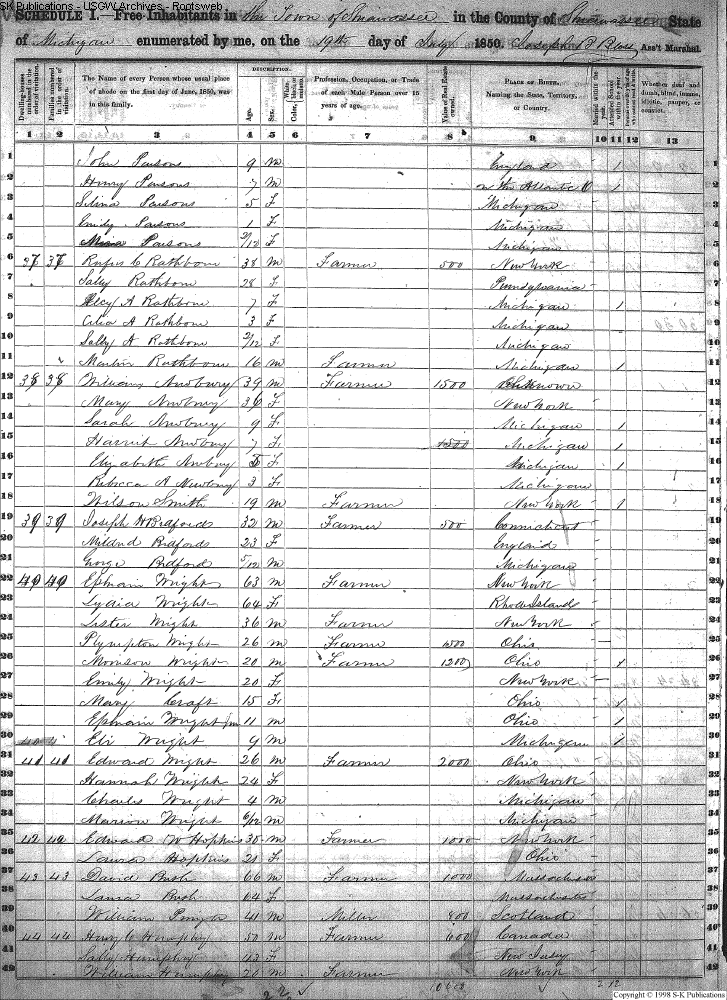 SK Publications - USGW Archives - Rootsweb
SCHEDULE I.—Free Inhabitants in the Town of Shiawassee in the County of Shiawassee State
of Michigan enumerated by me, on the 19th day of July 1850. Joseph P Bliss Ass't Marshal.
Dwelling-houses numbered in the order of visitation.
Families numbered in the order of visitation.
The Name of every Person whose usual place of abode on the first day of June, 1850, was in this family.
DESCRIPTION.
Age.
Sex.
Color, White, black, or mulatto.
Profession, Occupation, or Trade of each Male Person over 15 years of age.
Value of Real Estate owned.
PLACE OF BIRTH. Naming the State, Territory, or Country.
Married within the year.
Attended School within the year.
Whether deaf and dumb, blind, insane, idiotic, pauper, or convict.
1 2 3 4 5 6 7 8 9 10 11 12 13
1 John Parsons 9 m England 1
2 Henry Parsons 7 m on the Atlantic O 1
3 Selina Parsons 5 F Michigan
4 Emily Parsons 1 F Michigan
5 Parsons 2/12 F Michigan
6 37 37 Rufus C Rathbone 38 m Farmer 500 New York
7 Sally Rathbone 28 F Pennsylvania
8 A Rathbone 7 F Michigan 1
9 Celia A Rathbone 3 F Michigan
10 Sally A Rathbone 2/12 F Michigan
11 Martin Rathbone 16 m Farmer Michigan 1
12 38 38 William Newbury 39 m Farmer 1500 Unknown
13 Mary Newbury 36 F New York
14 Sarah Newbury 9 F Michigan 1
15 Harriet Newbury 7 F 1500 Michigan 1
16 Elizabeth Newbury 5 F Michigan 1
17 Rebecca A Newbury 3 F Michigan
18 Wilson Smith 19 m Farmer New York 1
19 39 39 Joseph H Bedfords 32 m Farmer 500 Connecticut
20 Mildred Bedfords 23 F England
21 George Bedford 5/12 m Michigan
22 40 40 Ephraim Wright 63 m Farmer New York
23 Lydia Wright 64 F Rhode Island
24 Lester Wright 36 m Farmer New York
25 Plympton Wright 26 m Farmer 1500 Ohio
26 Morrison Wright 20 m Farmer 1200 Ohio 1
27 Emily Wright 20 F New York
28 Mary Craft 15 F Ohio 1
29 Ephraim Wright Jun 11 m Ohio 1
30 Eli Wright 9 m Michigan 1
31 41 41 Edward Wright 26 m Farmer 2000 Ohio
32 Hannah Wright 24 F New York
33 Charles Wright 4 m Michigan
34 Marion Wright 6/12 m Michigan
35 42 42 Edward W Hopkins 30 m Farmer 1000 New York
36 Laura Hopkins 21 F Ohio
37 43 43 David Bush 66 m Farmer 1000 Massachuse
38 Laura Bush 64 F Massachusetts
39 William Pough 41 m Miller 800 Scotland
40 44 44 Humphry 50 m Farmer 600 Canada
41 Sally Humphry 43 F New Jersey
42 William Humphry 20 m Farmer New York
Copyright © 1998 S-K Publications